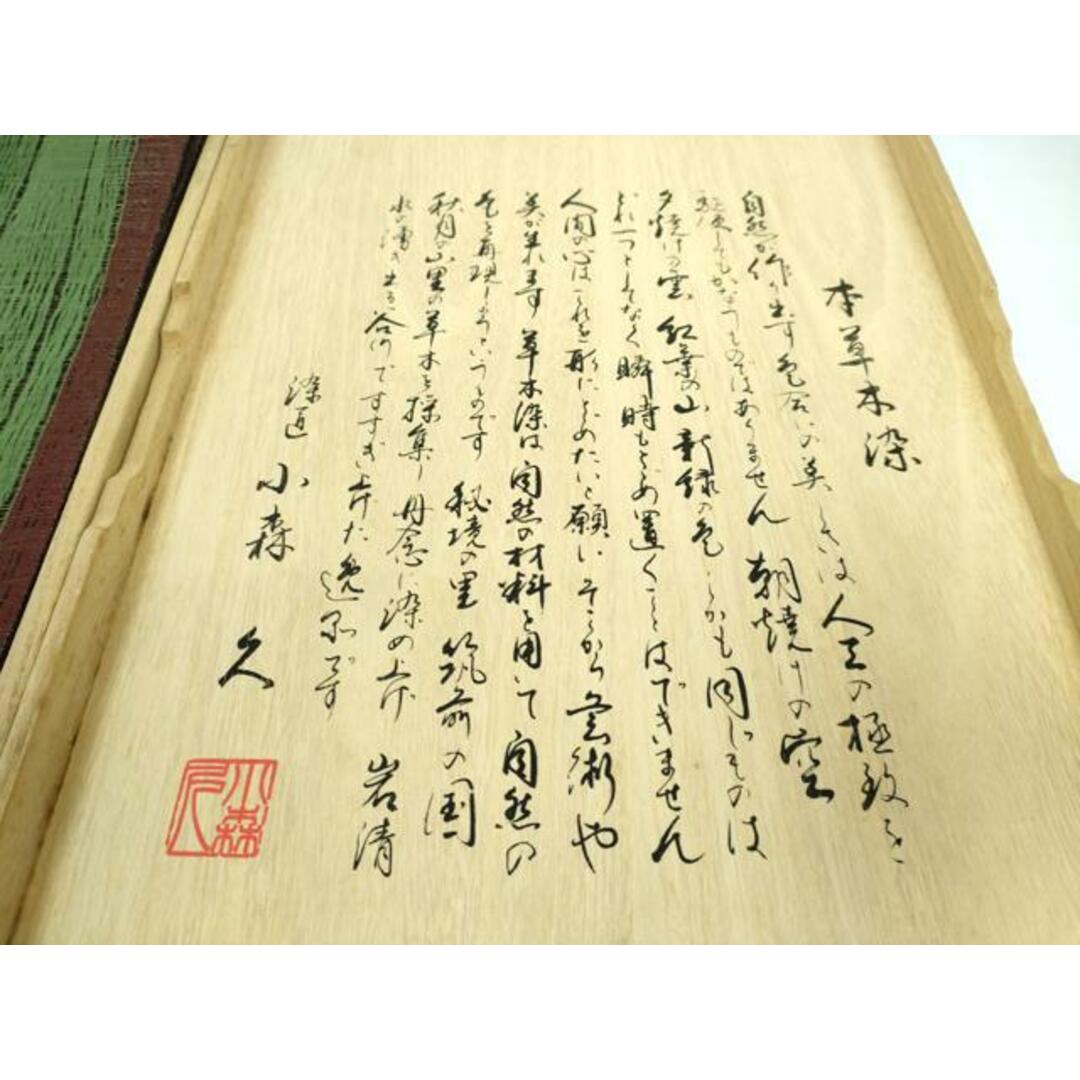 本草木染
自然が作り出す色合いの美しさは人工の極致を
駆使してもかなうものではありません 朝焼けの空
夕焼けの雲 紅葉の山 新緑の色しかも同じものは
どれ一つとしてなく瞬時もとどめ置くことはできません
人間の心はこれを形にとどめたいと願いそこから芸術や
美が生れます 草木染は自然の材料を用いて自然の
色を再現しようというものです 秘境の里 筑前の国
秋月の山里の草木を採集し丹念に染め上げ 岩清
水の湧き出る谷川ですすぎ上げた逸品です
染匠 小森 久
小森久